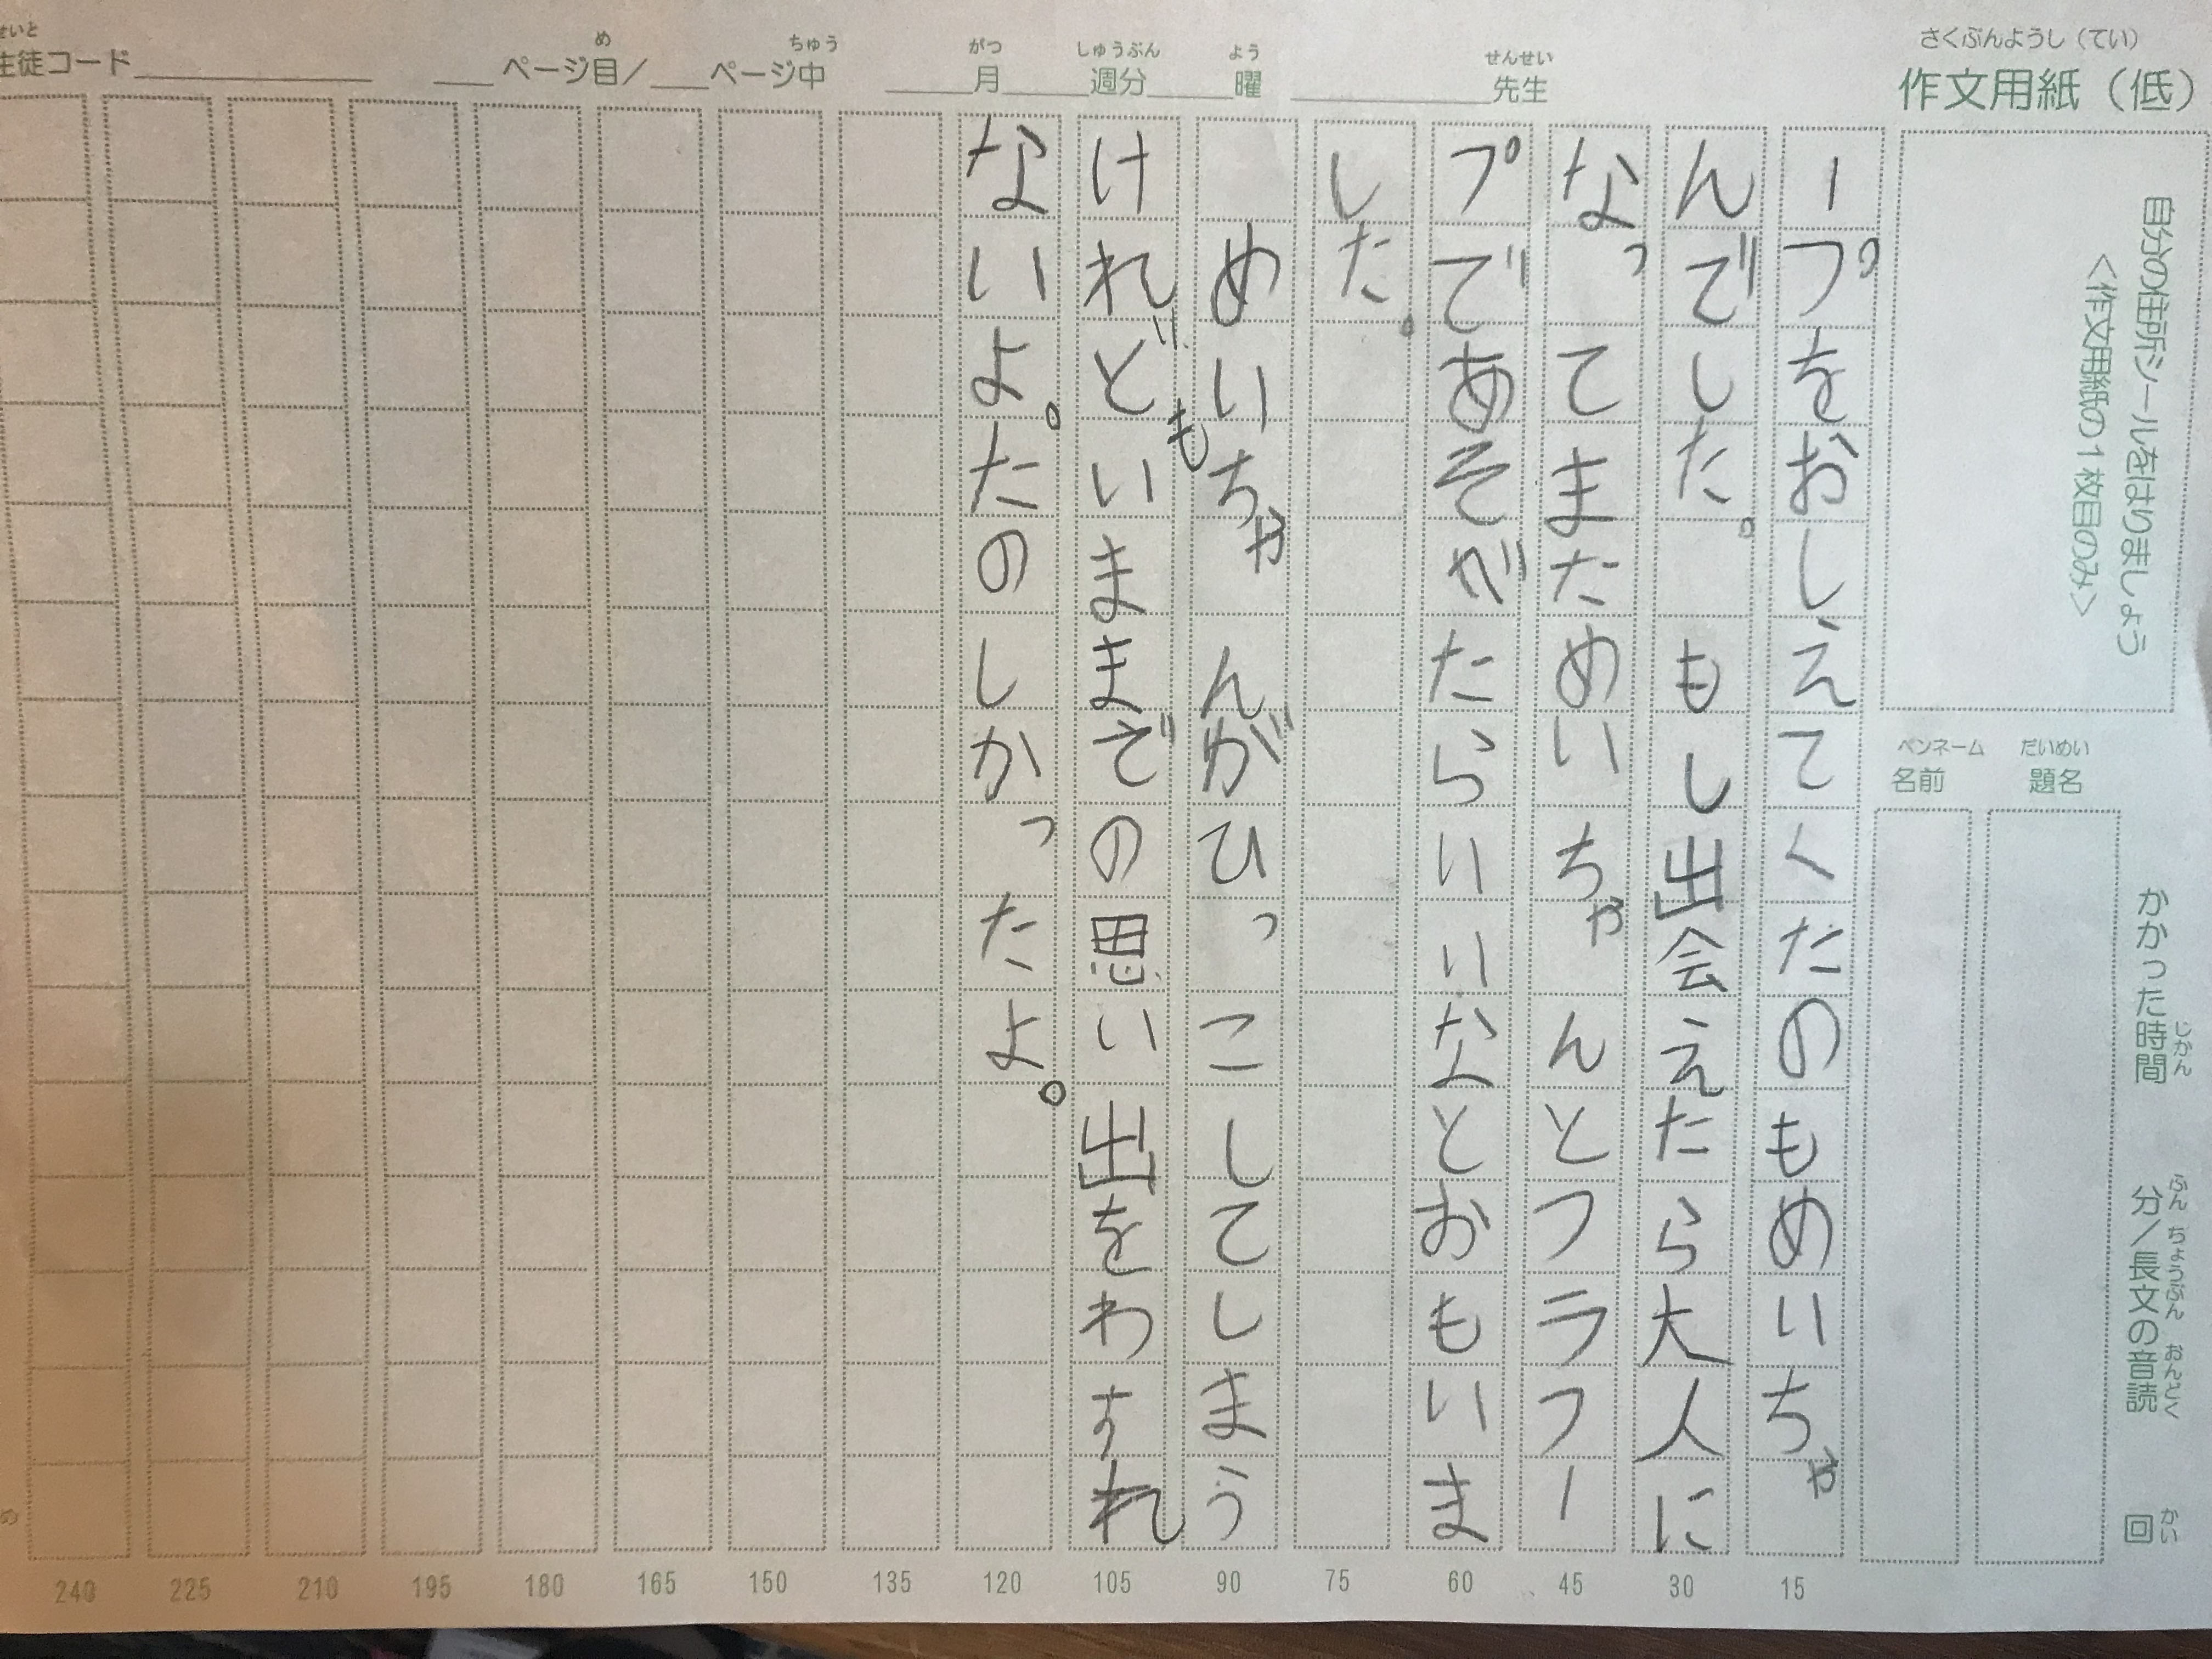 さくぶんようし（てい）
作文用紙（低）
自分の住所シールをはりましょう
＜作文用紙の１枚目のみ＞
せんせい
先生
よう
曜
しゅうぶん
週分
がつ
月
ちゅう
ページ中
め
ページ目／
せいと
生徒コード
かかった時間 分／長文の音読 回
じかん ふん ちょうぶん おんどく かい
だいめい
題名
ペンネーム
名前
ープをおしえてくたのもめいちゃ
んでした。もし出会えたら大人に
なってまためいちゃんとフラフー
プであそがたらいいなとおもいま
した。
めいちゃんがひっこしてしまう
けれどもいままでの思い出をわすれ
ないよ。たのしかったよ。
15
30
45
60
75
90
105
120
135
150
165
180
195
210
225
240
め